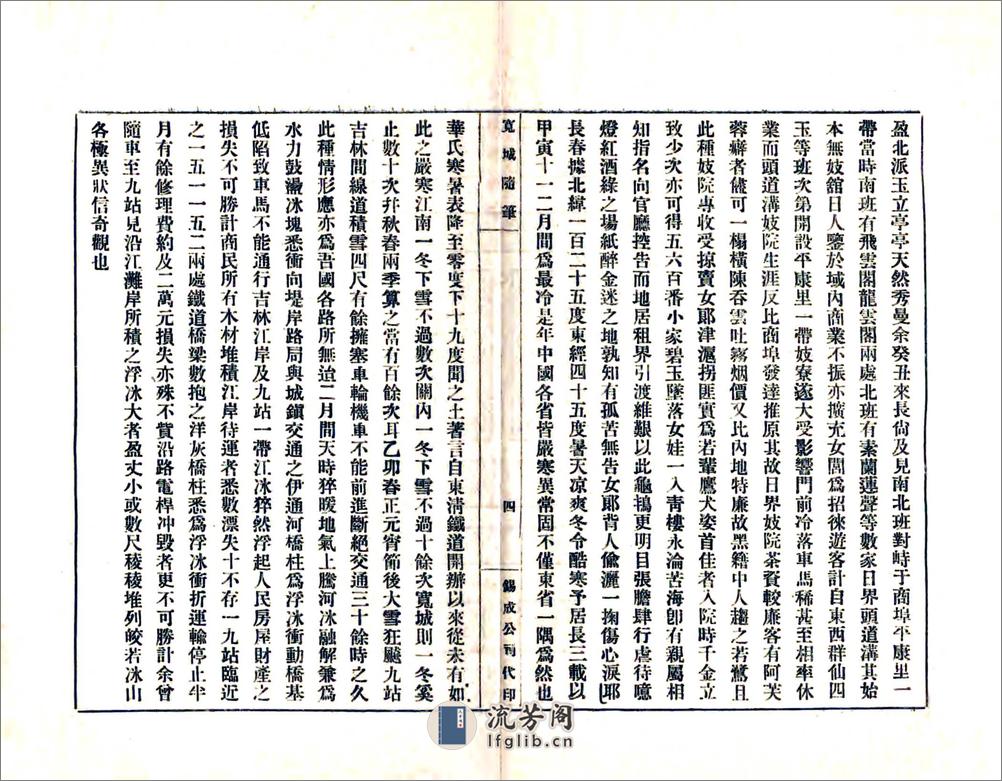 盈北派玉立亭亭天然秀曼余癸丑來長尙及見南北班對峙于商埠平康里一
帶當時南班有飛雲閣龍雲閣兩處北班有素蘭蓮聲等數家日界頭道溝其始
本無妓舘日人鑒於域內商業不振亦擴充女閭爲招徠遊客計自東西群仙四
玉等班次第開設平康里一帶妓寮遂大受影響門前冷落車馬稀甚至相率休
業而頭道溝妓院生涯反比商埠發達推原其故日界妓院茶資較廉客有阿芙
蓉癖者儘可一榻橫陳呑雲吐霧烟價又比內地特廉故黑籍中人趨之若鶩且
此種妓院專收受掠賣女郞津滬拐匪實爲若輩鷹犬姿首佳者入院時千金立
致少次亦可得五六百番小家碧玉墜落女娃一入靑樓永淪苦海卽有親屬相
知指名向官廳控告而地居租界引渡維艱以此龜鴇更明目張膽肆行虐待噫
燈紅酒綠之場紙醉金迷之地孰知有孤苦無告女郞背人偸灑一掬傷心淚耶
長春據北緯一百二十五度東經四十五度暑天凉爽冬令酷寒予居長三載以
甲寅十一二月間爲最冷是年中國各省皆嚴寒異常固不僅東省一隅爲然也
寬城隨筆
四
錫成公司代印
華氏寒暑表降至零度下十九度聞之土著言自東淸鐵道開辦以來從未有如
此之嚴寒江南一冬下雪不過數次關內一冬下雪不過十餘次寬城則一冬奚
止數十次幷秋春兩季算之當有百餘次耳乙卯春正元宵節後大雪狂飈九站
吉林間線道積雪四尺有餘擁塞車輪機車不能前進斷絕交通三十餘時之久
此種情形應亦爲吾國各路所無迨二月間天時猝暖地氣上騰河冰融解兼爲
水力鼓盪冰塊悉衝向堤岸路局與城鎭交通之伊通河橋柱爲浮冰衝動橋基
低陷致車馬不能通行吉林江岸及九站一帶江冰猝然浮起人民房屋財產之
損失不可勝計商民所有木材堆積江岸待運者悉數漂失十不存一九站臨近
之一五一一五二兩處鐵道橋梁數抱之洋灰橋柱悉爲浮冰衝折運輸停止半
月有餘修理費約及二萬元損失亦殊不貲沿路電桿冲毀者更不可勝計余曾
隨車至九站見沿江灘岸所積之浮冰大者盈丈小或數尺稜稜堆列皎若冰山
各極異狀信奇觀也
流芳阁
lfglib.cn